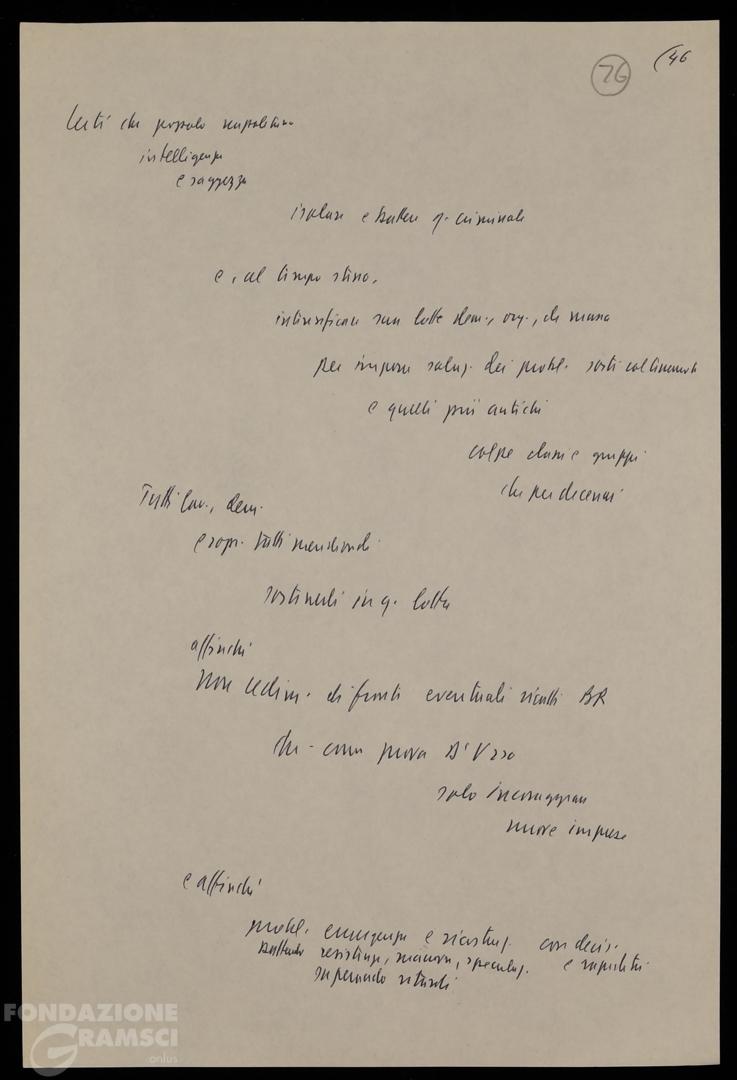 76
(46
Certi che popolo napoletano
intelligenza
e saggezza
isolare e battere q. criminale
e, al tempo stesso,
intensificare sua lotta dem., org., di massa
per imporre soluz. dei probl. sorti col terremoto
e quelli più antichi
colpa classi e gruppi
che per decenni
Tutti lav., dem.
e sopr. tutti meridionali
sostenerli in q. lotta
affinché
Non cedim. di fronte eventuali ricatti BR
che - come prova D'Urso
solo incoraggiare
nuove imprese
e affinché
probl. emergenza e ricostruz. con decis.
battendo resistenze, manovre, speculaz. e rapidità
superando ritardi
FONDAZIONE
GRAMSCI
onlus